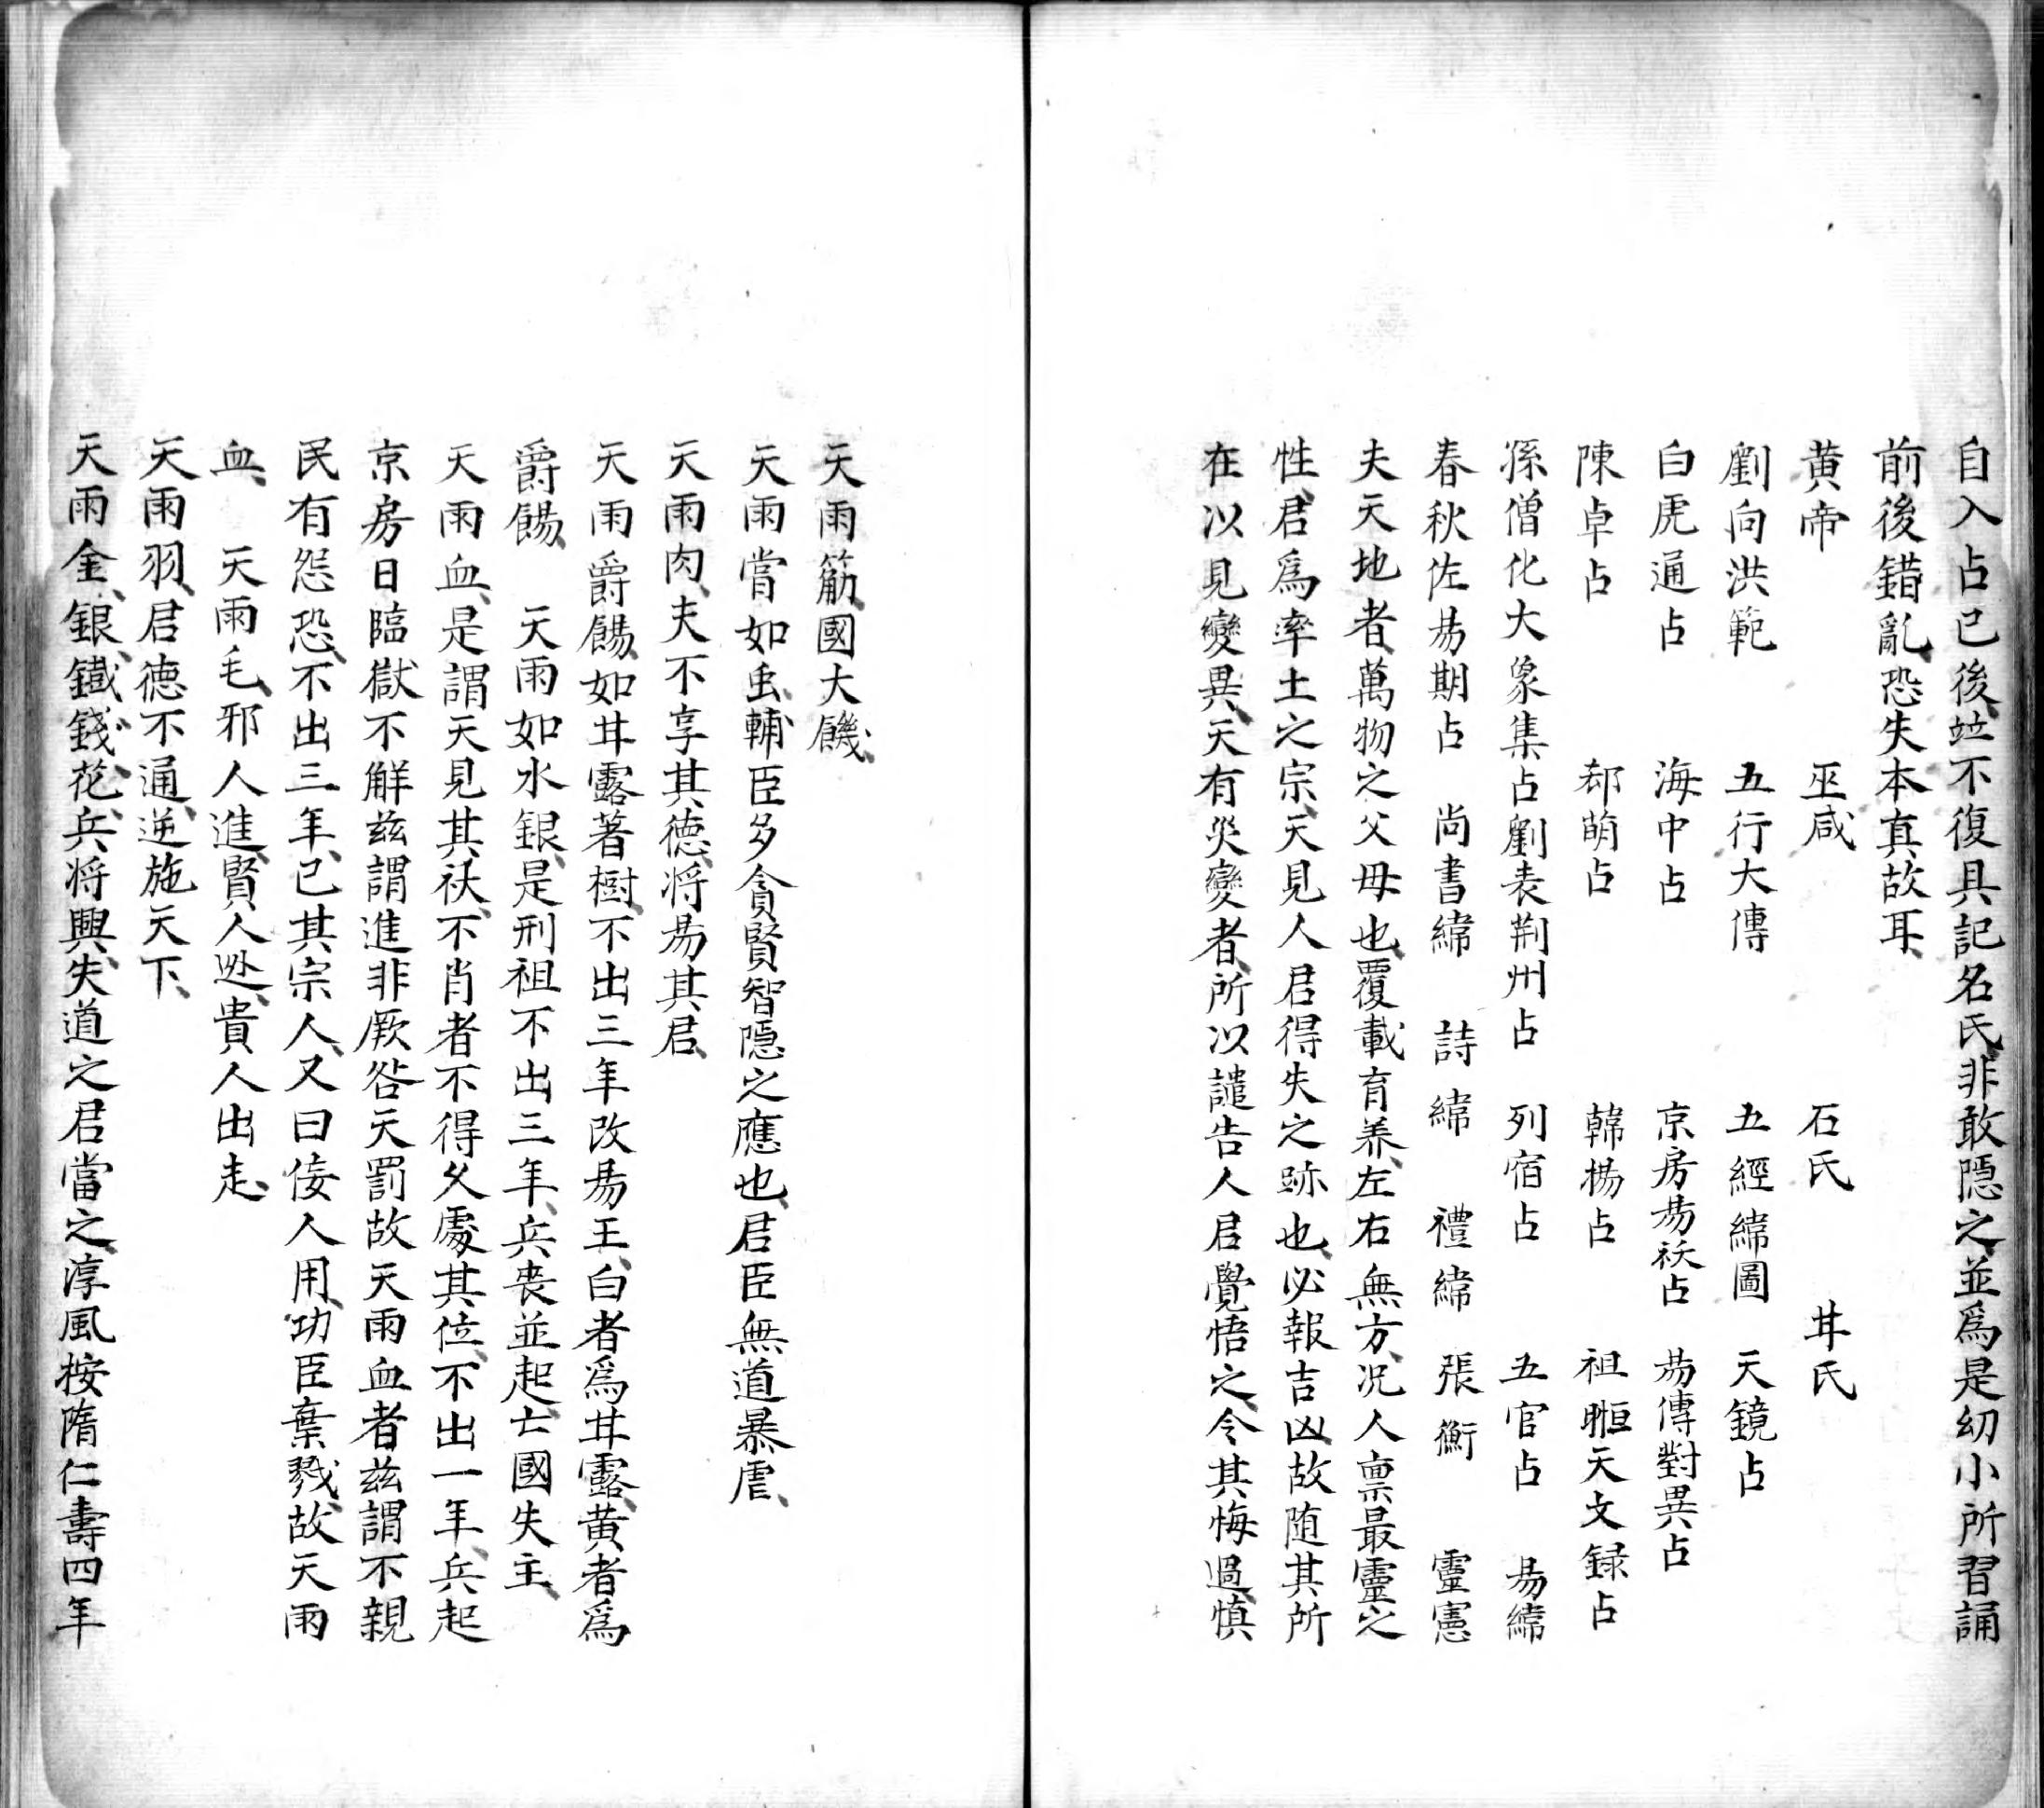 自入占已後竝不復具記名氏非敢隱之並爲是幼小所習誦
前後錯亂恐失本真故耳
黄帝　巫咸　石氏　甘氏
劉向洪範　五行大傳　五經緯圖　天鏡占
白虎通占　海中占　京房易祅占　易傳對異占
陳卓占　郗萌占　韓楊占　祖暅天文録占
孫僧化大象集占劉表荆州占　列宿占　五官占　易緯
春秋佐易期占　尚書緯　詩緯　禮緯　張衡　靈憲
夫天地者萬物之父母也覆載育养左右無方况人禀最靈之
性君爲率土之宗天見人君得失之跡也必報吉凶故随其所
在以見變異天有災變者所以譴告人君覺悟之令其悔過慎
天雨筋國大饑
天雨嘗如虫輔臣多貪賢智隱之應也君臣無道暴虐
天雨肉夫不享其德将易其君
天雨爵餳如甘露著樹不出三年改易王白者爲甘露黄者爲
爵餳　天雨如水銀是刑祖不出三年兵丧並起亡國失主
天雨血是謂天見其祅不肖者不得久處其位不出一年兵起
京房日臨獄不解兹謂進非厥咎天罰故天雨血者兹謂不親
民有怨恐不出三年已其宗人又曰佞人用功臣棄戮故天雨
血　天雨毛邪人進賢人迯貴人出走
天雨羽君德不通逆施天下
天雨金銀鐡錢花兵将興失道之君當之淳風按隋仁壽四年